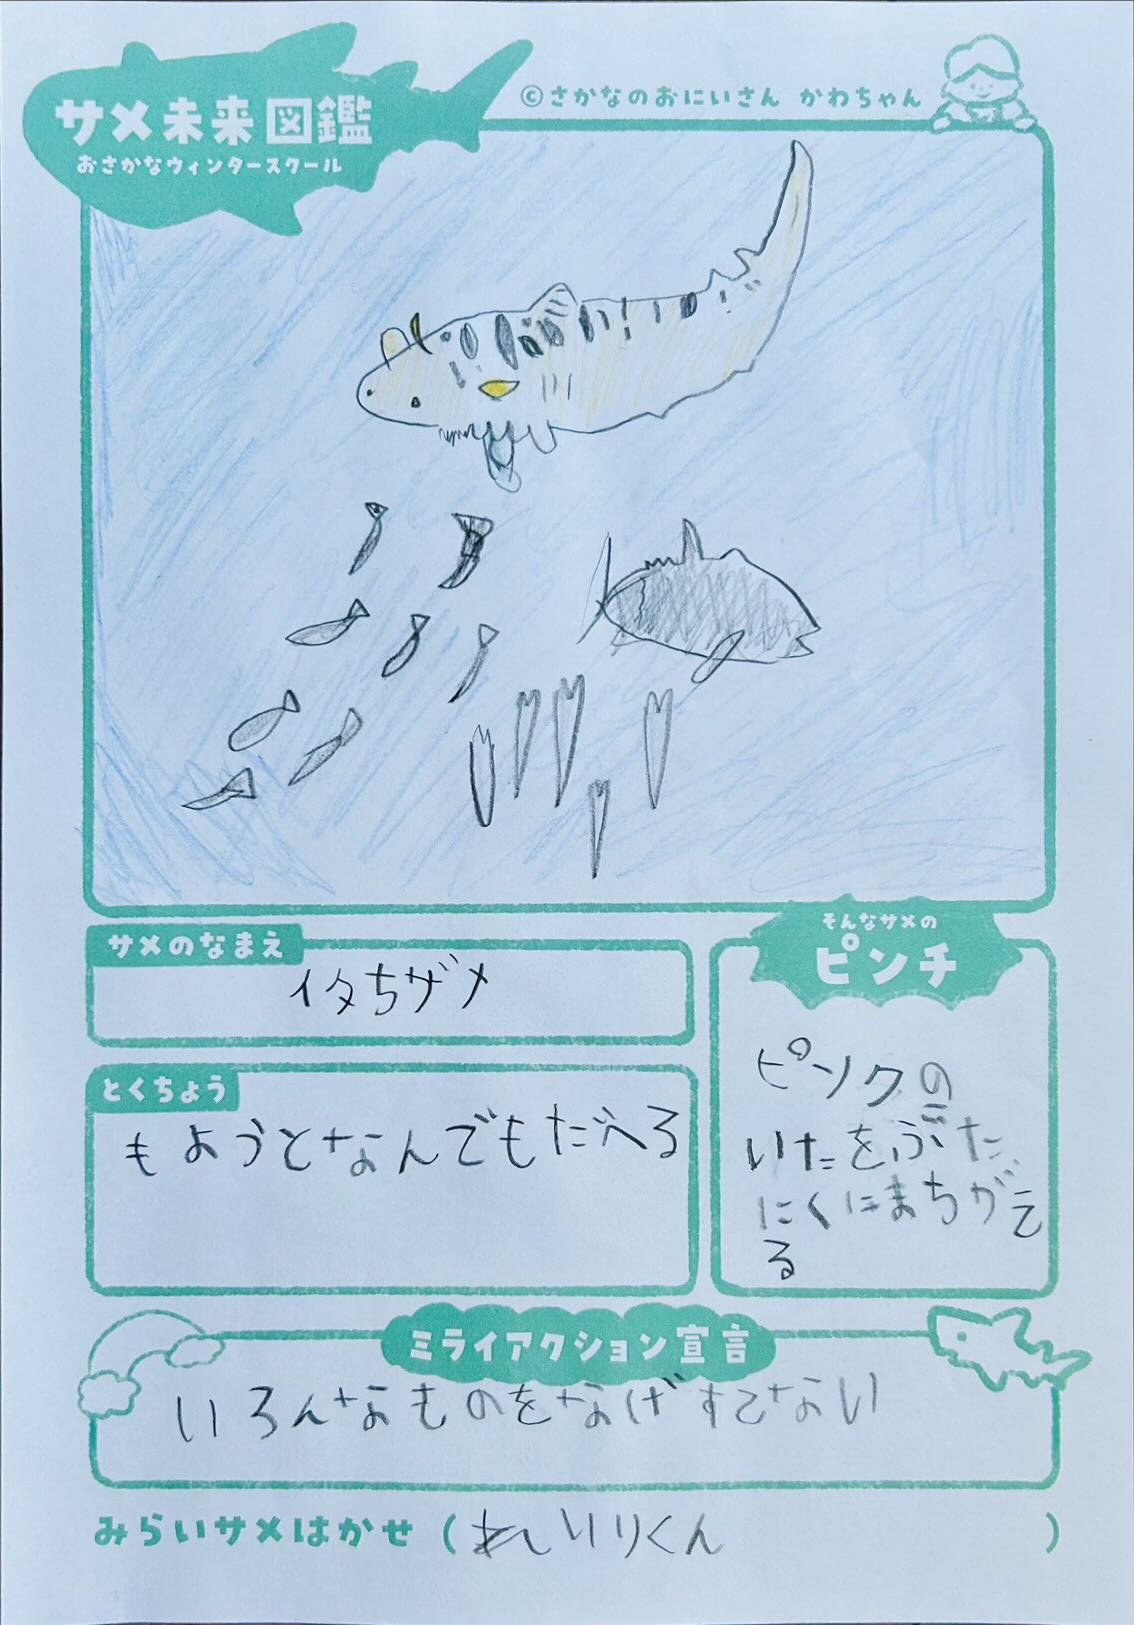 サメ未来図鑑
おさかなウィンタースクール
©さかなのおにいさん かわちゃん
サメのなまえ
イタちザメ
とくちょう
もようとなんでもたべる
そんなサメの
ピンチ
ピンクの
いたをぶた
にくにまちがえ
る
ミライアクション宣言
いろんなものをなげすてない
みらいサメはかせ(れいりくん)